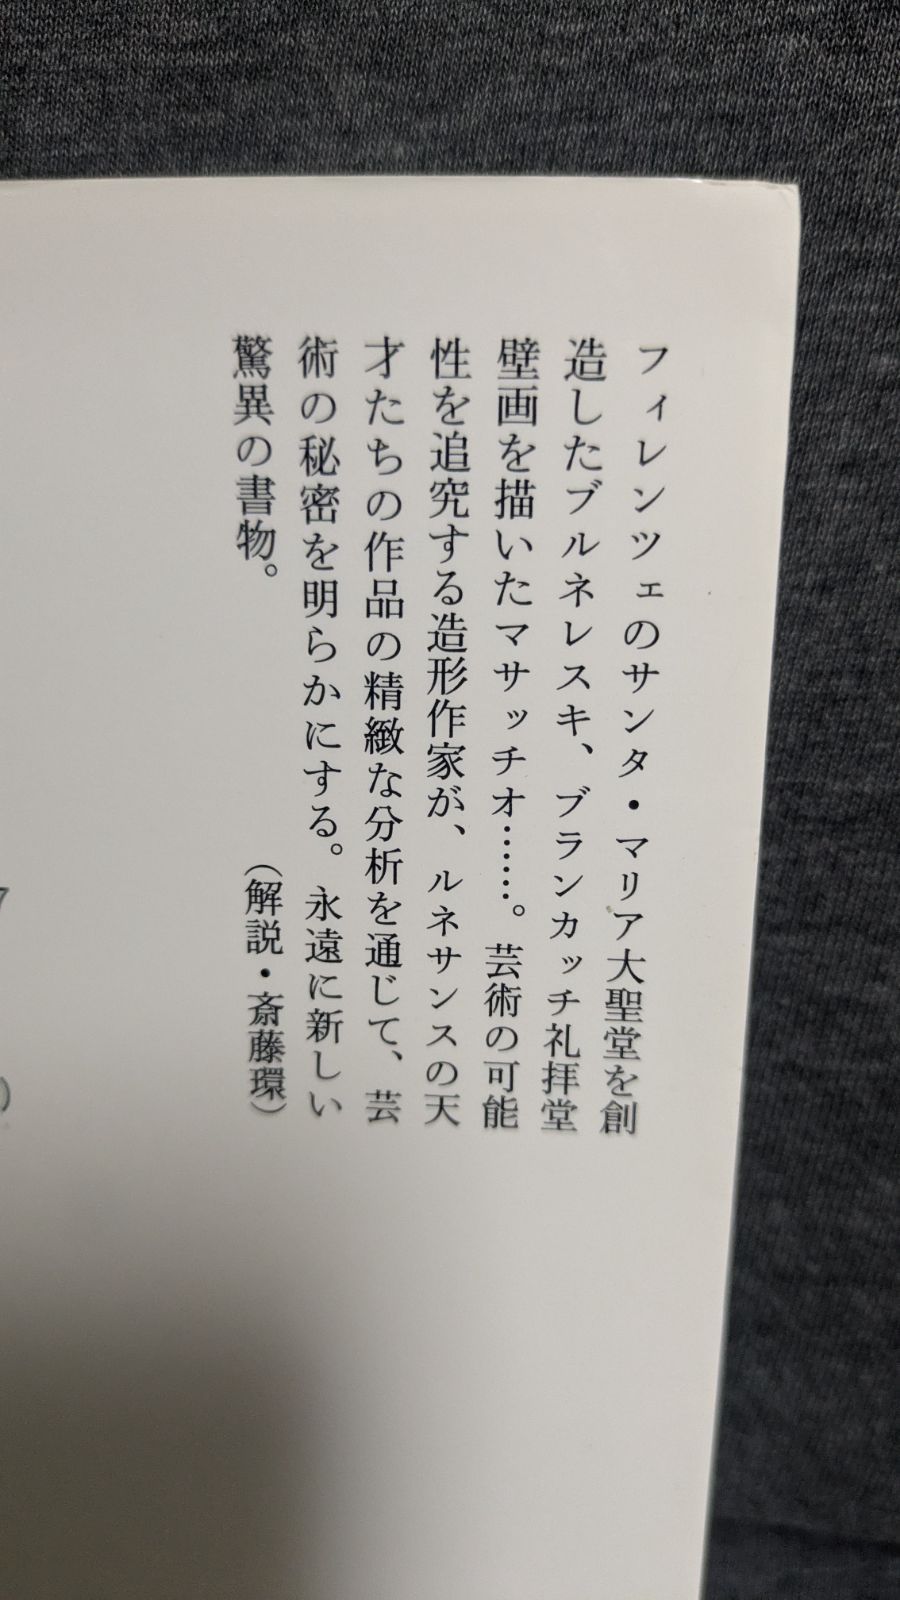 フィレンツェのサンタ・マリア大聖堂を創
造したブルネレスキ、ブランカッチ礼拝堂
壁画を描いたマサッチオ……。芸術の可能
性を追究する造形作家が、ルネサンスの天
才たちの作品の精緻な分析を通じて、芸
術の秘密を明らかにする。永遠に新しい
驚異の書物。
（解説・斎藤環）